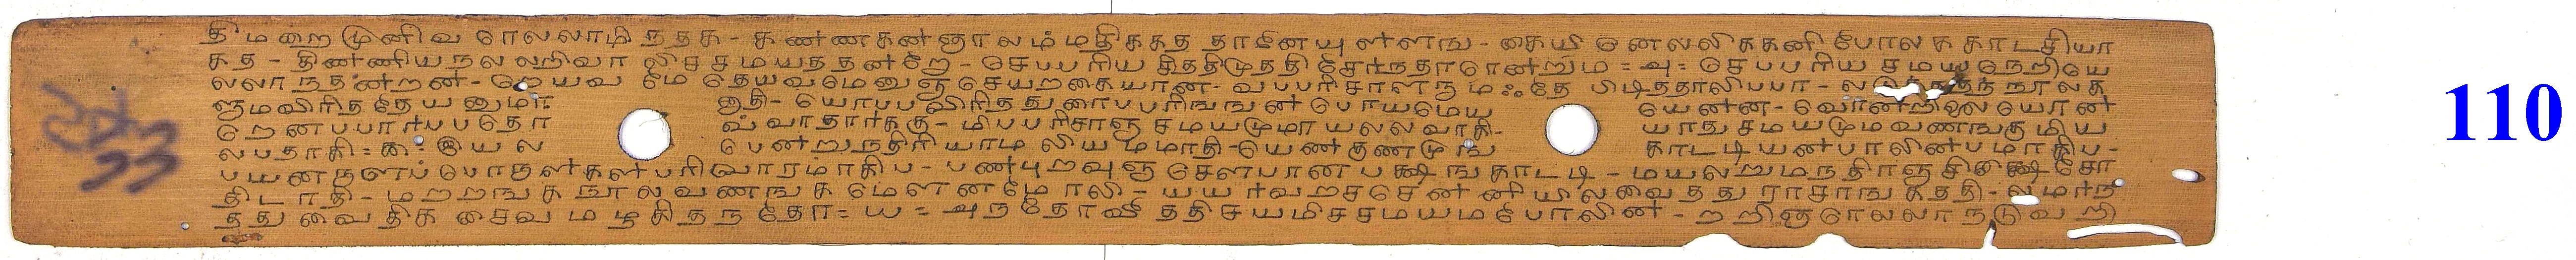 திமறை முனிவ ரெலலாமி நதக - கணணகன ஞாலமமதிககத தானேயுளளஙு - கையி னெலலிககனி போலக காடசியா
கத - திணணியநல லறிவா லிசசமயத தனறே - செபபரிய சிததிமுததி சேரநதாரெனறும = அ = செபபரிய சமயநெறியே
லலாநதனறன - றெயவ மே தெயவமெனுஞ செயறகையான - வபபரிசாளரும ஃதே பிடிததாலிபபா - ல
ஞமவிரித தேயனுமா னுதி - யொபபவிரித துரைபபரிஙஙன பொயமெய யெனன - வொனறிலையொன
றெனபபாரபபதோ வவாதாரககு - மிபபரிசாஞ சமயமுமா யலலவாகி - யாதுசமயமும வணஙகுமிய
லபதாகி = க = இயல பெனறுநதிரியாம லியமமாதி - யெணகுணமுங காடடியனபாலினபமாகிப -
பயனருளப பொருளகள பரிவாரமாகிப - பணபுறவுஞ செளபான பக்ஷஙகாடடி - மயலறுமநதிரஞ சிக்ஷை சோ
திடாதி - மறறஙக நூலவணஙக மௌனமோலி - யயரவறசசெனனியிலவைதது ராசாஙகததி - லமரந
தது வைதிக சைவ மழகிதநதோ = ய = அநதோவி ததிசயமிசசமயம போலின - றறிஞரெலலா நடுவறி
110